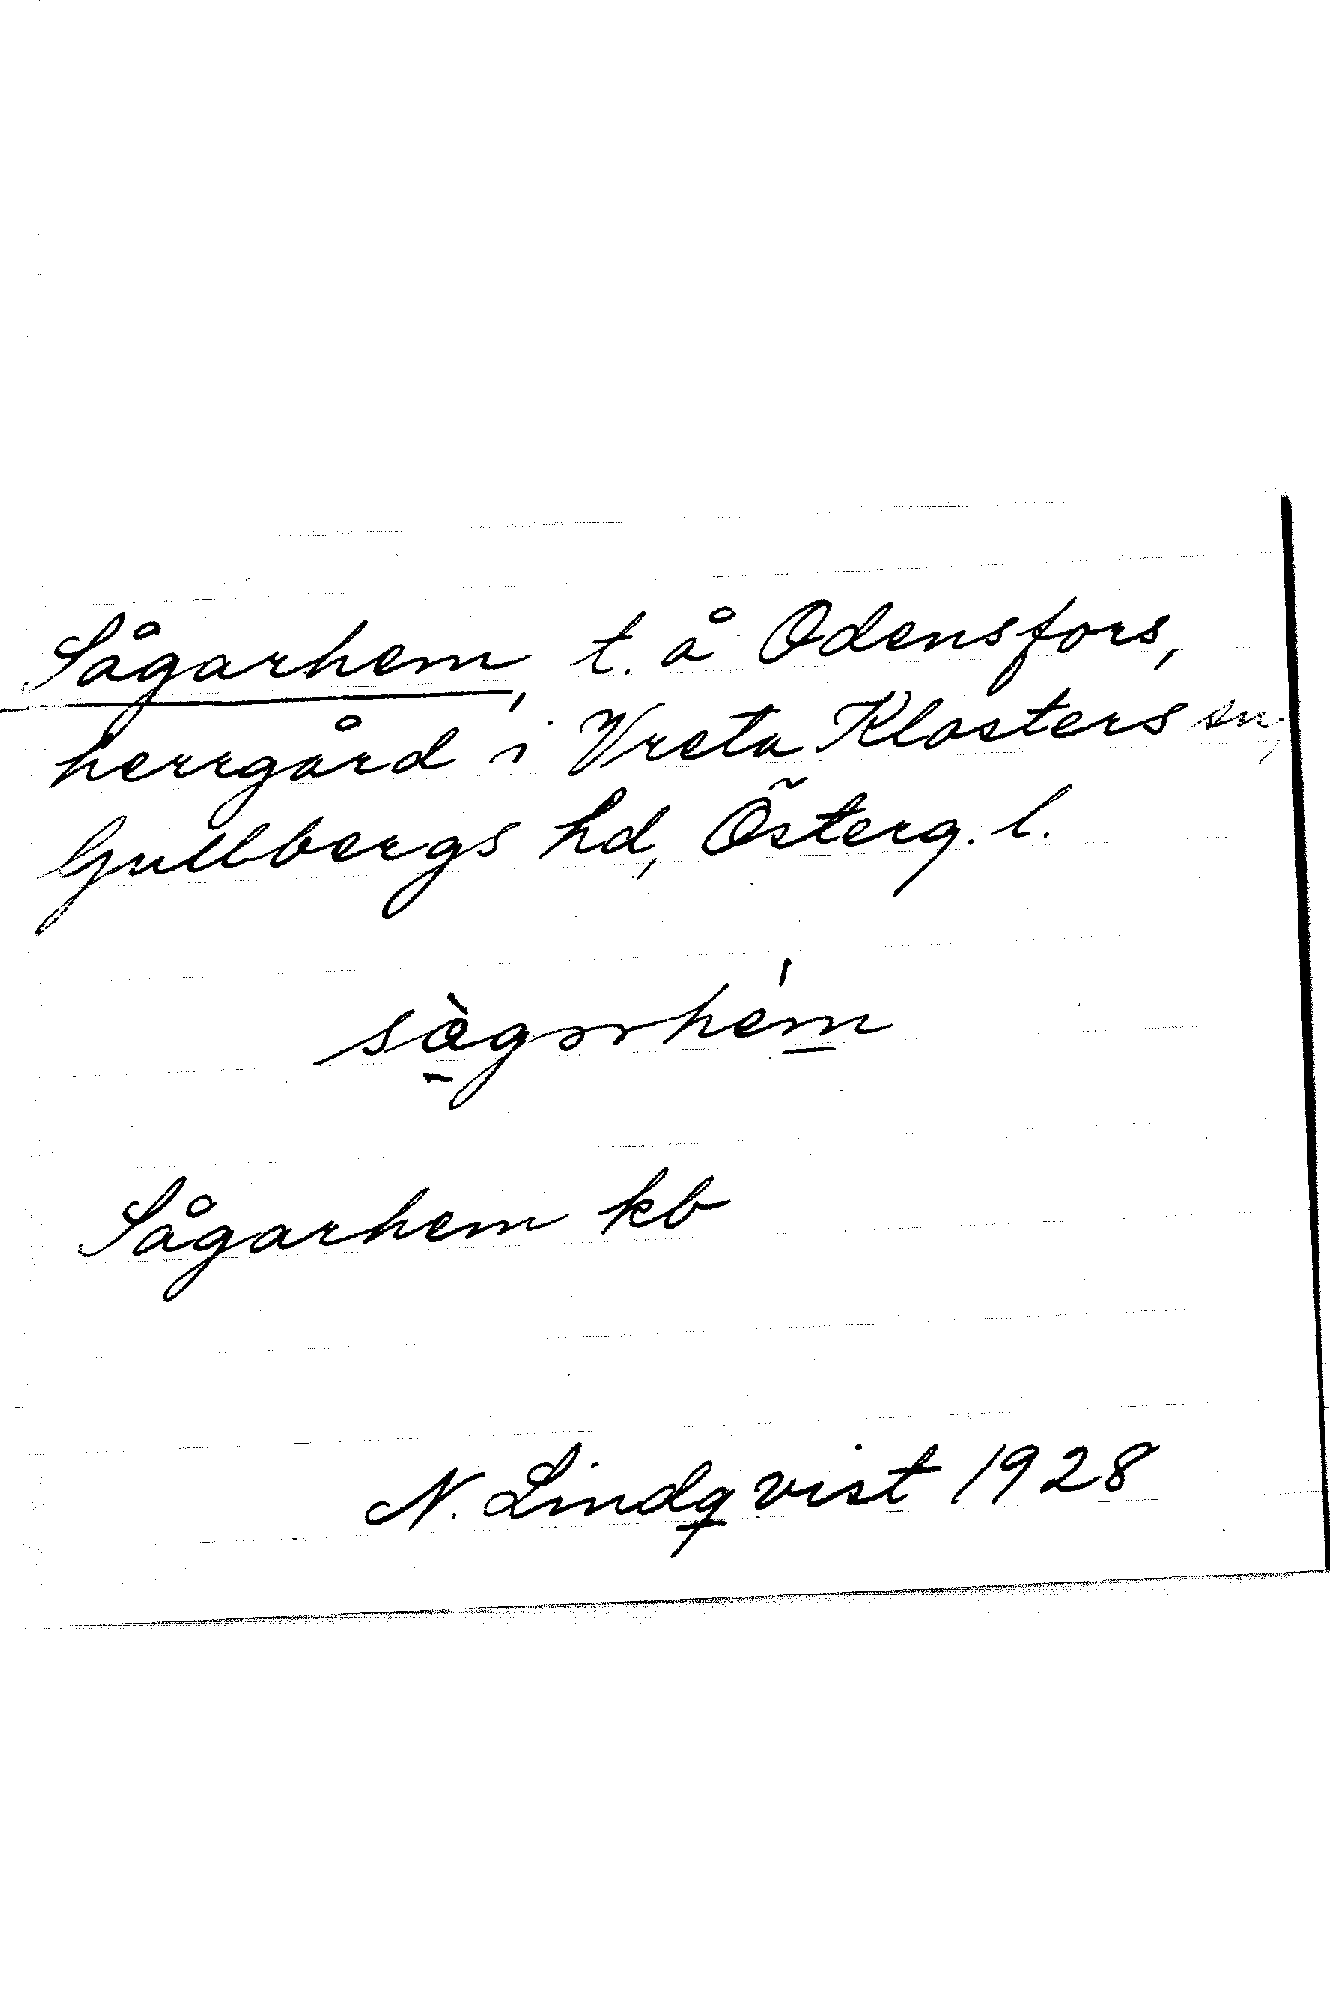 Sågarhem, t. å Odensfors,
herrgård i Vreta Klosters sn,
Gullbergs hd, Österg. l.
sὰgərhém
Sågarhem kb
N. Lindqvist 1928